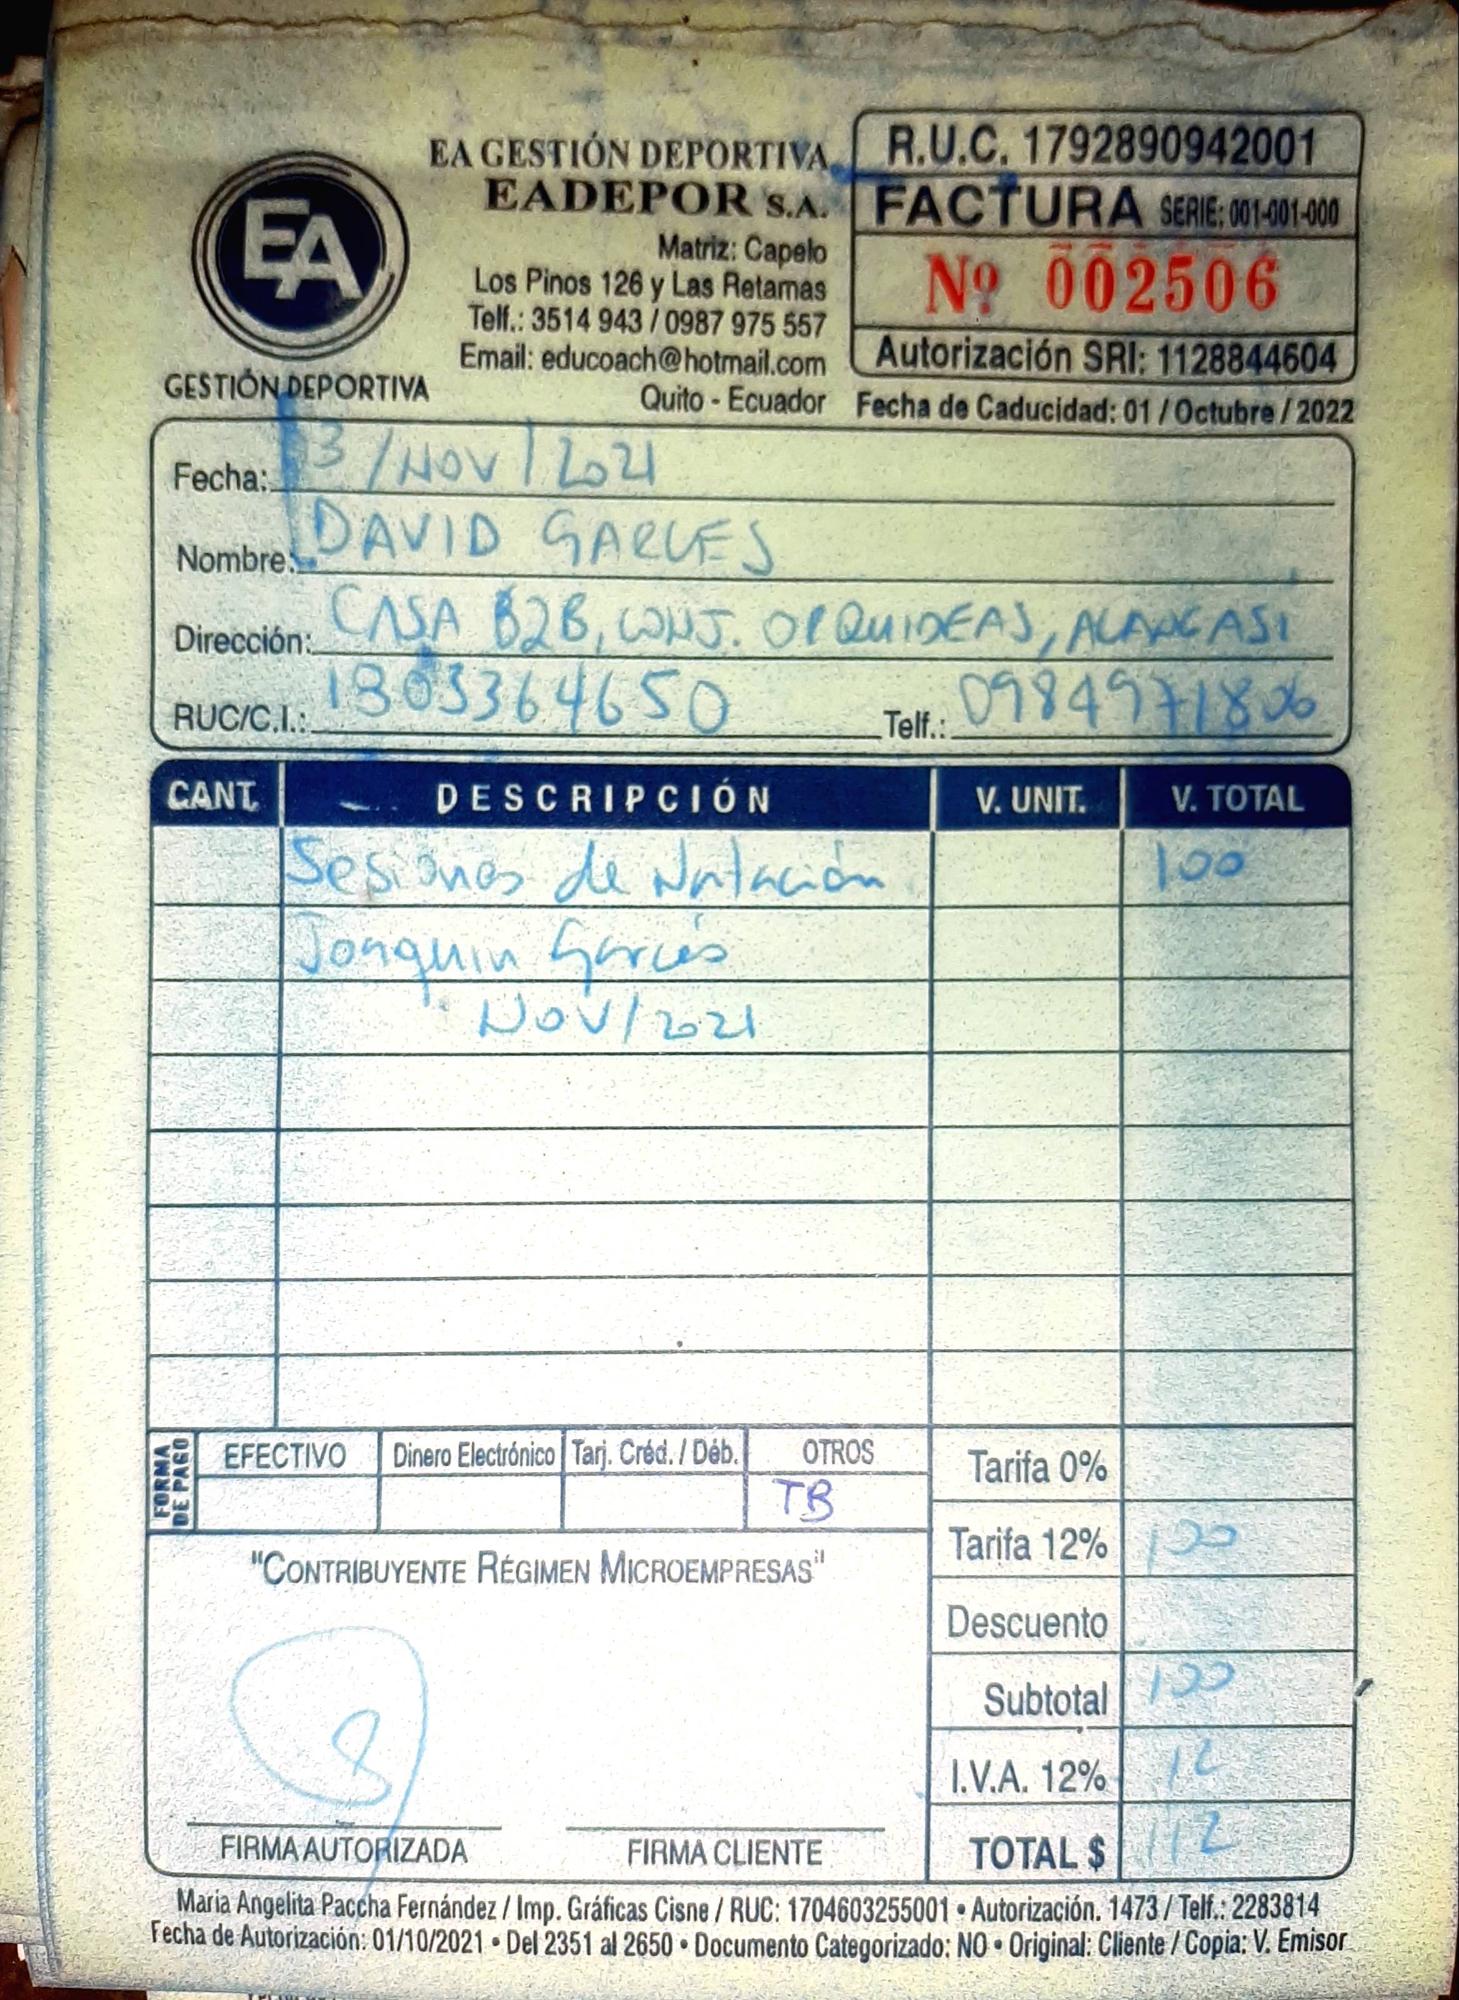 EA GESTIÓN DEPORTIVA
EADEPOR S.A.
Matriz: Capelo
Los Pinos 126 y Las Retamas
Telf.: 3514 943 / 0987 975 557
Email: educoach@hotmail.com
Quito - Ecuador
EA
GESTIÓN DEPORTIVA
R.U.C. 1792890942001
FACTURA SERIE: 001-001-000
Nº 002506
Autorización SRI: 1128844604
Fecha de Caducidad: 01 / Octubre / 2022
Fecha: 13 / NOV / 2021
Nombre: DAVID GARCES
Dirección: CASA B2B, CONJ. ORQUIDEAS, ALANGASI
RUC/C.I.: 1803364650 Telf.: 0984971806
CANT. DESCRIPCIÓN V. UNIT. V. TOTAL
Sesiones de Natación 100
Joaquin Garcés
NOV/2021
FORMA DE PAGO EFECTIVO Dinero Electrónico Tarj. Créd. / Déb. OTROS
TB
Tarifa 0%
Tarifa 12% 100
Descuento
Subtotal 100
I.V.A. 12% 12
TOTAL $ 112
"CONTRIBUYENTE RÉGIMEN MICROEMPRESAS"
FIRMA AUTORIZADA FIRMA CLIENTE
Maria Angelita Paccha Fernández / Imp. Gráficas Cisne / RUC: 1704603255001 • Autorización. 1473 / Telf.: 2283814
Fecha de Autorización: 01/10/2021 • Del 2351 al 2650 • Documento Categorizado: NO • Original: Cliente / Copia: V. Emisor